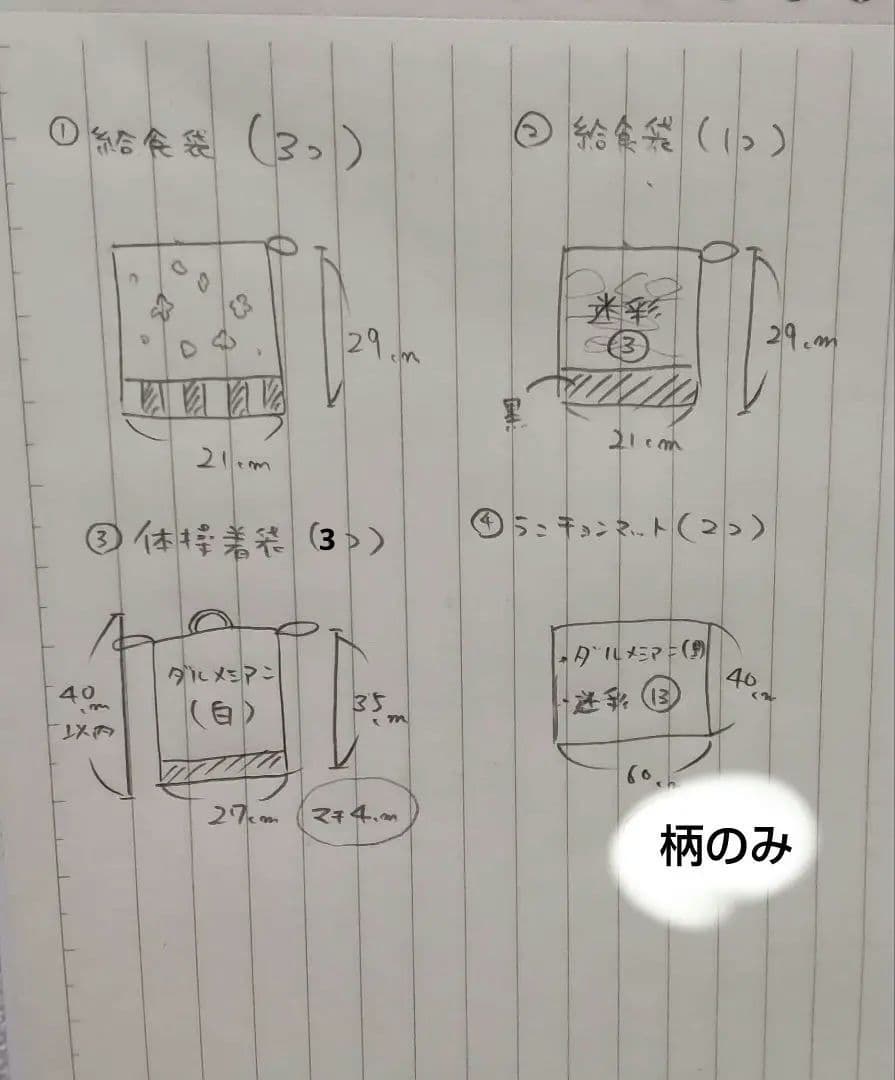 ① 給食袋 (3コ)
29cm
21cm
② 給食袋 (1コ)
迷彩
③
黒
29cm
21cm
③ 体操着袋 (3コ)
40cm
以内
ダルメシアン
(白)
35cm
27cm
マチ4cm
④ ランチョンマット (2コ)
・ダルメシアン(黒)
・迷彩 ⑬
40cm
60cm
柄のみ